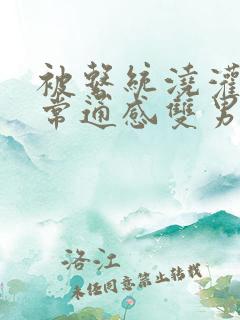 被繫統澆灌
常通感雙男
洛江
未经同意禁止转载